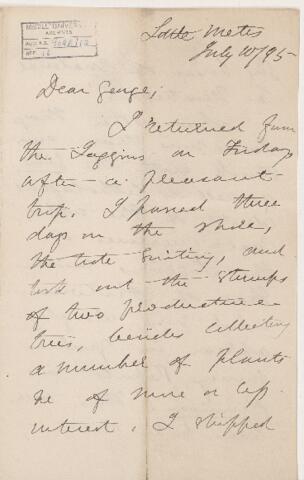 McGILL UNIVERSITY
ARCHIVES
ACC. NO.
REF.
Little Metis
July 10/95
Dear George,
I returned from
the Joggins on Friday
after a pleasant
trip. I passed three
days on the shore,
the tide suiting, and
took out the stumps
of two productive
trees, besides collecting
a number of plants
&c of more or less
interest. I shipped